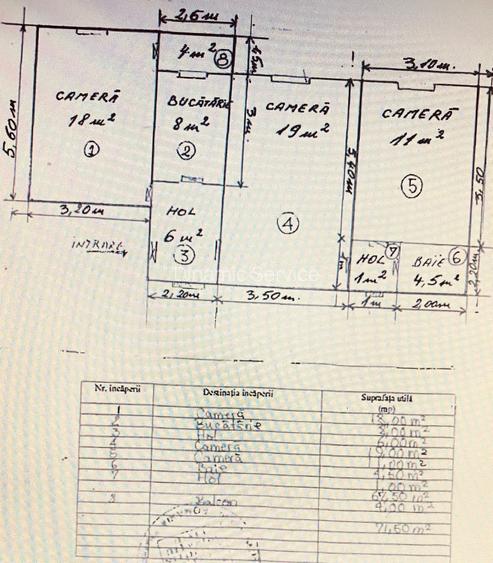 2,6m
4 m² 8
1,5m
3,10m
CAMERĂ
18 m²
1
BUCĂTĂRIE
8 m²
2
3m.
CAMERĂ
19 m²
4
CAMERĂ
11 m²
5
5,60m
5,40m
3,20m
INTRARE
HOL
6 m²
3
HOL 7
1 m²
BAIE 6
4,5 m²
2,20m
2,20m
3,50m.
1m
2,00m
Dynamic Service
Nr. încăperii Destinația încăperii Suprafața utilă
(mp)
1 Cameră 18,00 m²
2 Bucătărie
3 Hol 6,00 m²
4 Cameră 19,00 m²
5 Cameră
6 Baie 4,50 m²
7 Hol 1,00 m²
8 Balcon
71,50 m²